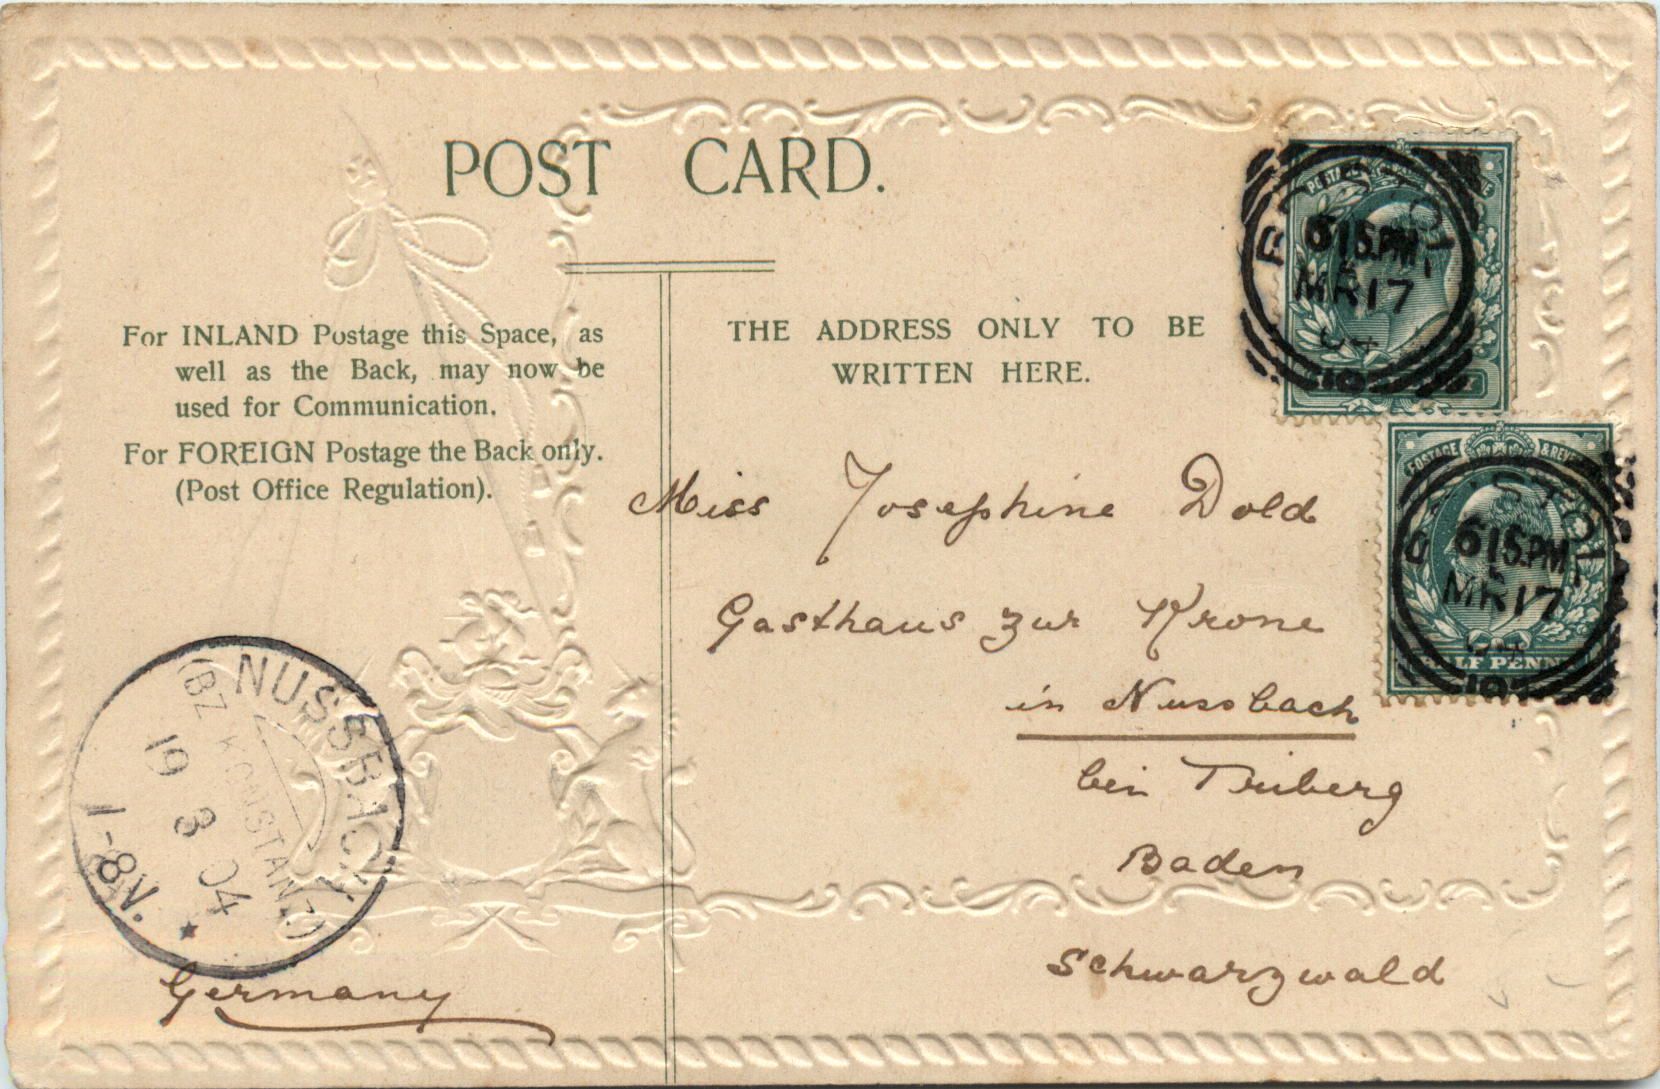 POST CARD.
For INLAND Postage this Space, as
well as the Back, may now be
used for Communication.
For FOREIGN Postage the Back only.
(Post Office Regulation).
THE ADDRESS ONLY TO BE
WRITTEN HERE.
Miss Josephine Dold
Gasthaus zur Krone
in Nussbach
bei Triberg
Baden
Schwarzwald
Germany
BRISTOL
6 15 PM
MR 17
04
POSTAGE & REVENUE
HALF PENNY
BRISTOL
6 15 PM
MR 17
NUSSBACH
(BZ KONSTANZ)
19 3 04
1-8V.